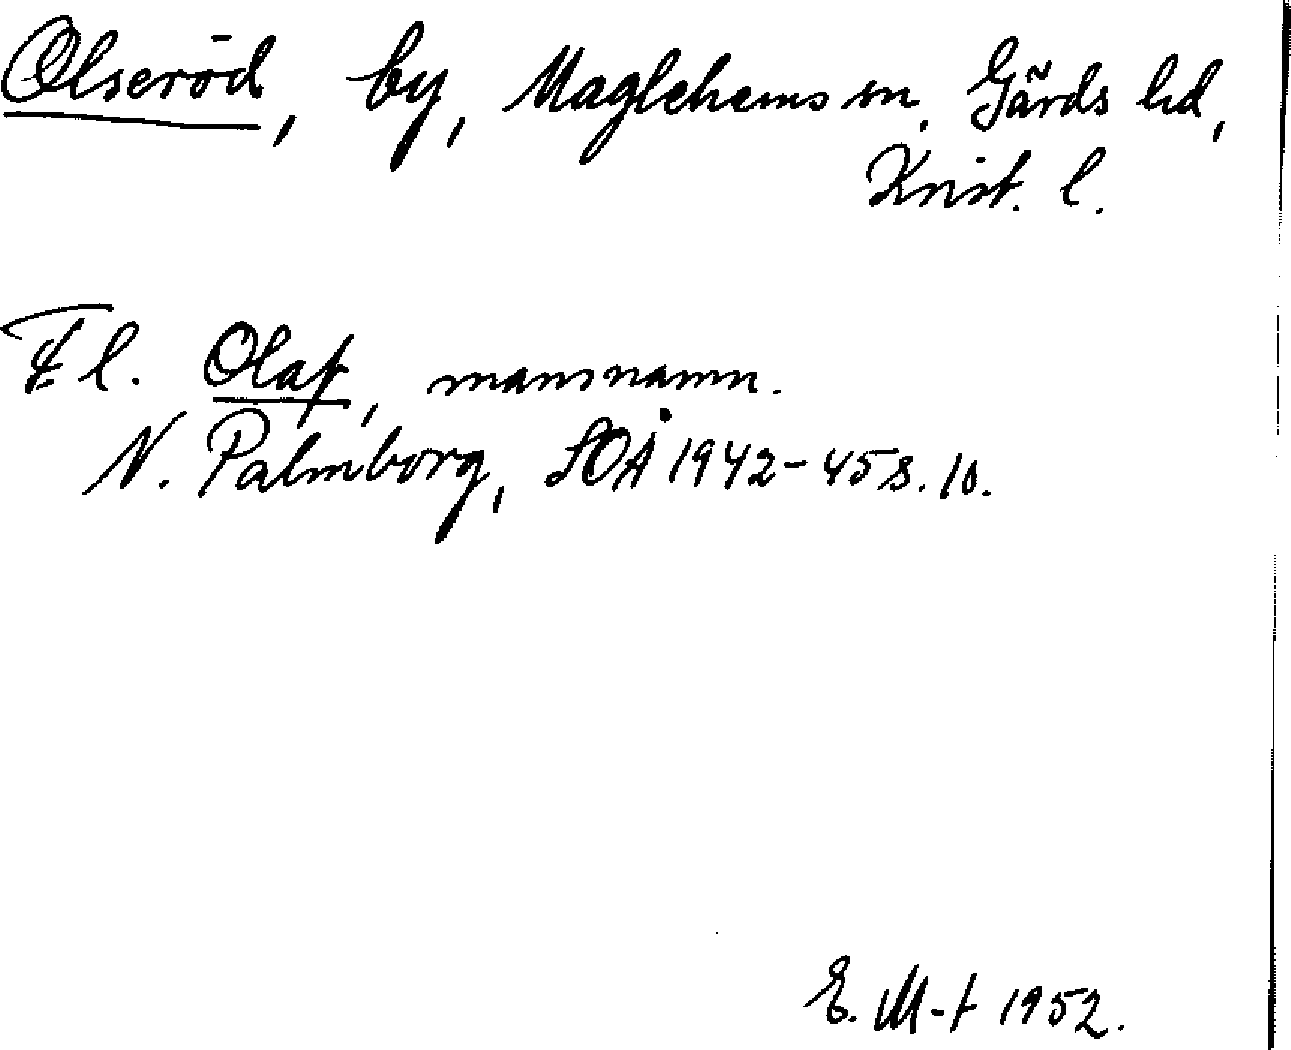 Olseröd, by, Maglehems sn, Gärds hd,
Krist. l.
F l. Olaf, mansnamn.
N. Palmborg, SOÅ 1942-45 s. 10.
E. M-t 1952.